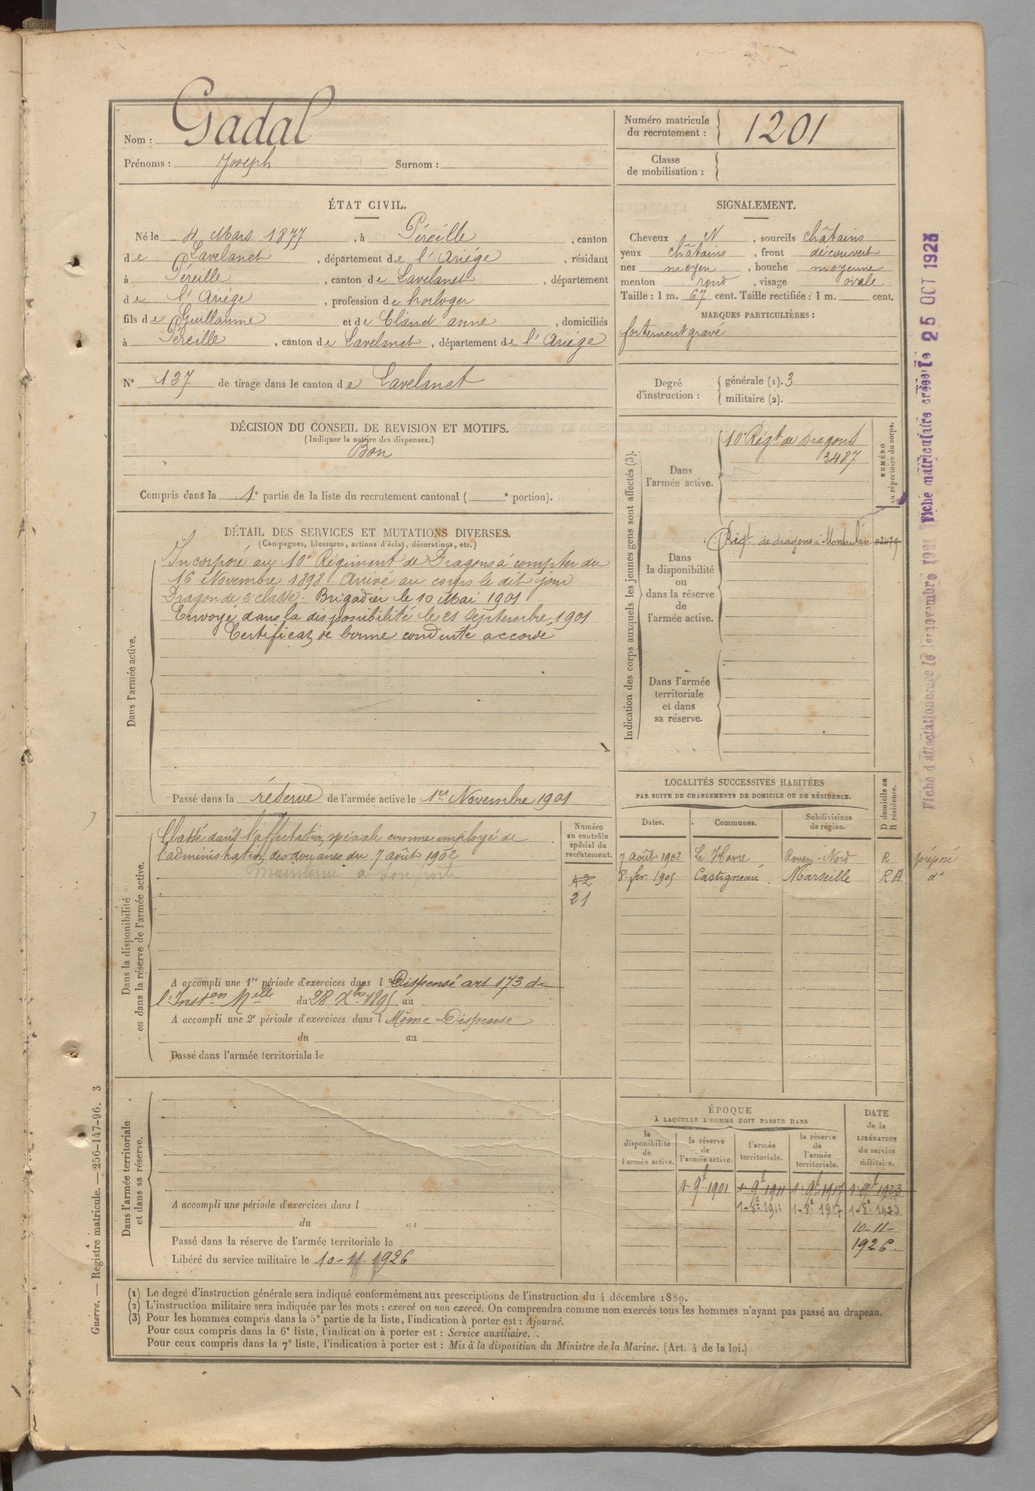 Nom : Gadal
Prénoms : Joseph Surnom :
Numéro matricule du recrutement : 1201
Classe de mobilisation :
ÉTAT CIVIL.
Né le 4 Mars 1877, à Péreille, canton
de Lavelanet, département de l'Ariége, résidant
à Péreille, canton de Lavelanet, département
de l'Ariége, profession de horloger
fils de Guillaume et de Claud anne, domiciliés
à Péreille, canton de Lavelanet, département de l'Ariége
N° 137 de tirage dans le canton de Lavelanet
SIGNALEMENT.
Cheveux N, sourcils châtains
yeux châtains, front découvert
nez moyen, bouche moyenne
menton rond, visage ovale
Taille : 1 m. 67 cent. Taille rectifiée : 1 m. cent.
MARQUES PARTICULIÈRES :
fortement gravé
Degré d'instruction : générale (1). 3
militaire (2).
DÉCISION DU CONSEIL DE REVISION ET MOTIFS.
(Indiquer la nature des dispenses.)
Bon
Compris dans la 1e partie de la liste du recrutement cantonal ( e portion).
DÉTAIL DES SERVICES ET MUTATIONS DIVERSES.
(Campagnes, blessures, actions d'éclat, décorations, etc.)
Dans l'armée active.
Incorporé au 10e Régiment de Dragons à compter du
16 Novembre 1898. Arrivé au corps le dit jour
Dragon de 2e classe. Brigadier le 10 Mai 1901
Envoyé dans la disponibilité le 21 Septembre 1901
Certificat de bonne conduite accordé
Passé dans la réserve de l'armée active le 1er Novembre 1901
Indication des corps auxquels les jeunes gens sont affectés (3).
NUMÉRO au répertoire du corps.
Dans l'armée active.
10e Régt de Dragons
3487
Dans la disponibilité ou dans la réserve de l'armée active.
Régt de dragons à Montauban
Dans l'armée territoriale et dans sa réserve.
LOCALITÉS SUCCESSIVES HABITÉES
PAR SUITE DE CHANGEMENTS DE DOMICILE OU DE RÉSIDENCE.
Dates. Communes. Subdivisions de région. D domicile ou R résidence.
7 août 1902 Le Havre Rouen-Nord R préposé
8 fév. 1905 Castigneau Marseille RA do
Dans la disponibilité ou dans la réserve de l'armée active.
Numéro au contrôle spécial du recrutement.
Classé dans l'affectation spéciale comme employé de
l'administration des douanes du 7 août 1902
42
21
A accompli une 1re période d'exercices dans l Dispensé art 173 de
l'Inston Melle du 28 Xbre 1895 au
A accompli une 2e période d'exercices dans l Même Dispense
du au
Passé dans l'armée territoriale le
Dans l'armée territoriale et dans sa réserve.
A accompli une période d'exercices dans l
du au
Passé dans la réserve de l'armée territoriale le
Libéré du service militaire le 10-11-1926
ÉPOQUE
À LAQUELLE L'HOMME DOIT PASSER DANS
la disponibilité de l'armée active. la réserve de l'armée active. l'armée territoriale. la réserve de l'armée territoriale. DATE de la LIBÉRATION du service militaire.
1-9t 1901 1-9t 1911 1-9t 1917 1-9t 1923
1-8t 1911 1-8t 1917 1-8t 1923
10-11-
1926
(1) Le degré d'instruction générale sera indiqué conformément aux prescriptions de l'instruction du 4 décembre 1889.
(2) L'instruction militaire sera indiquée par les mots : exercé ou non exercé. On comprendra comme non exercés tous les hommes n'ayant pas passé au drapeau.
(3) Pour les hommes compris dans la 5e partie de la liste, l'indication à porter est : Ajourné.
Pour ceux compris dans la 6e liste, l'indication à porter est : Service auxiliaire.
Pour ceux compris dans la 7e liste, l'indication à porter est : Mis à la disposition du Ministre de la Marine. (Art. 4 de la loi.)
Guerre. — Registre matricule. — 256-147-96. 3
Fiche matriculaire créée le 25 OCT 1923
Fiche d'affectation créée le 1er novembre 1921